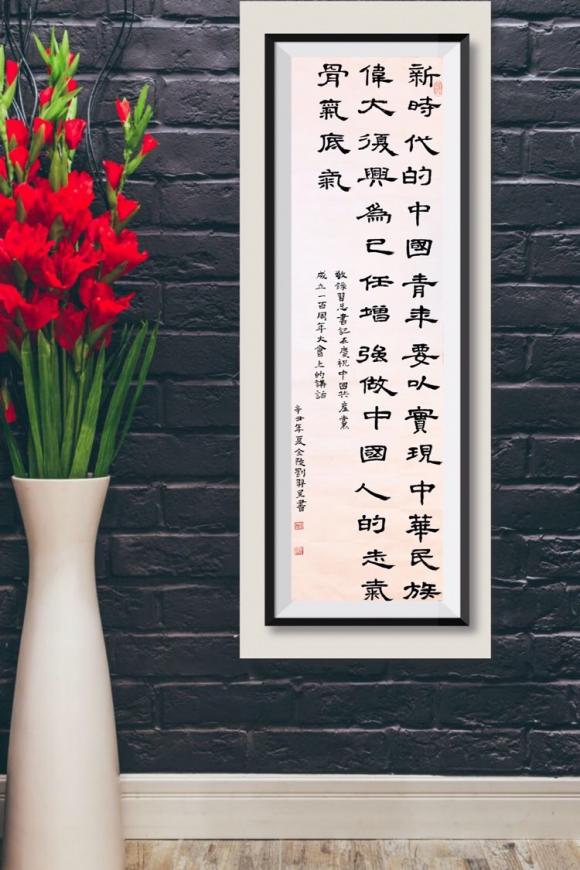 新時代的中國青年要以實現中華民族
偉大復興為己任增強做中國人的志氣
骨氣底氣
敬錄習总書記在慶祝中國共產黨
成立一百周年大會上的講話
辛丑年夏金陵劉羿呈書